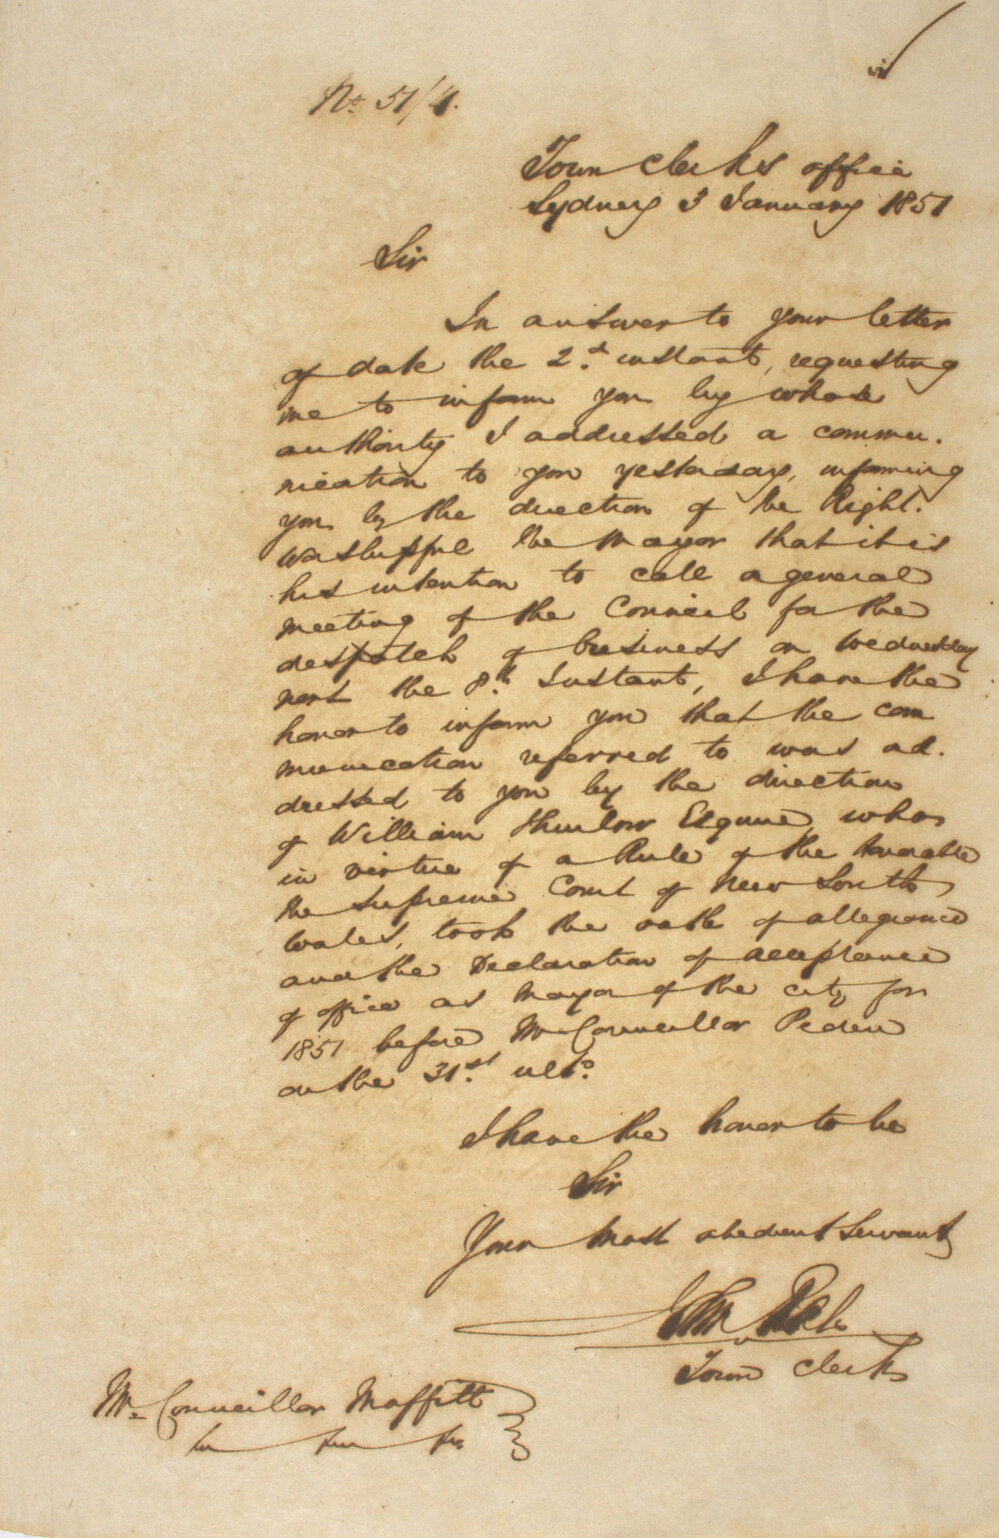 No 51/4.
Town Clerks office
Sydney 3 January 1851
Sir
In answer to your letter
of date the 2.d instant, requesting
me to inform you by whose
authority I addressed a commu.
nication to you yesterday, informing
you by the direction of the Right.
Worshipful the Mayor that it is
his intention to call a general
meeting of the Council for the
despatch of business on Wednesday
next the 8.th Instant, I have the
honor to inform you that the com
munication referred to was ad.
dressed to you by the direction
of William Thurlow Esquire, who
in virtue of a Rule of the Honorable
the Supreme Court of New South
Wales, took the oath of allegiance
and the Declaration of acceptance
of office as Mayor of the city for
1851 before Mr Councillor Peden
on the 31.st ulto.
I have the honor to be
Sir
Your most obedient Servant
John Rae
Town Clerk
Mr Councillor Moffitt